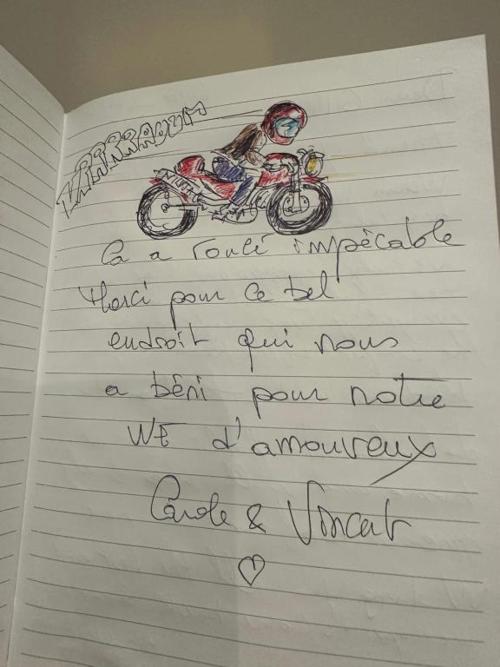 VRRRRAOUM
Ca a roulé impécable
Merci pour ce bel
endroit qui nous
a béni pour notre
WE d'amoureux
Carole & Vincent